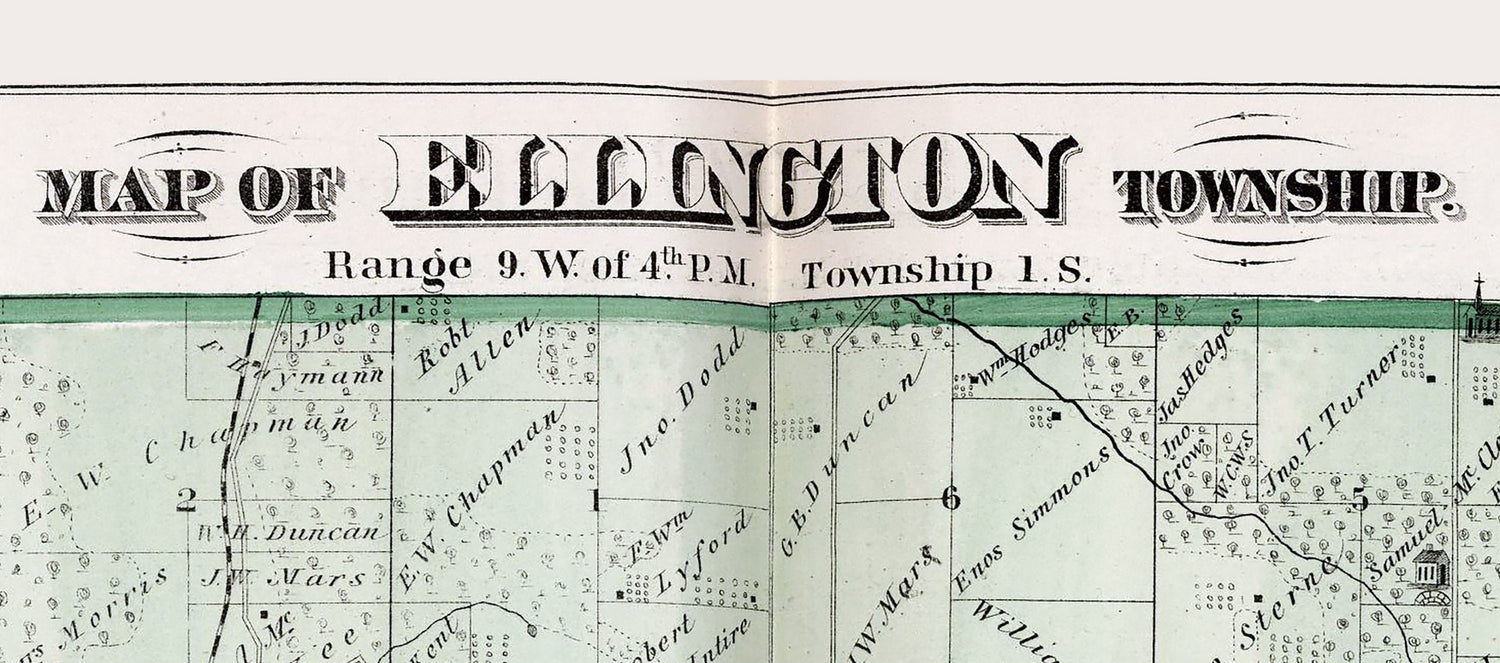 MAP OF ELLINGTON TOWNSHIP.
Range 9. W. of 4.th P. M. Township 1. S.
J. Dodd
Robt
Allen
Jno. Dodd
G. B. Duncan
Wm Hodges
E. B.
Jas Hedges
Jno. T. Turner
Chapman
E. W.
E. W. Chapman
Jno.
Crow
W. C. W. S.
2
1
6
5
W. H. Duncan
J. W. Mars
Wm
Lyford
Enos Simmons
Samuel
Morris
Mc
Kent
W. Mars
Sterne